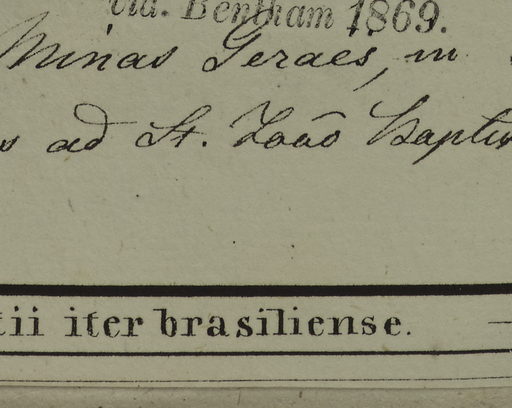 vid. Bentham 1869.
Minas Geraes, in
ad St. João Baptis
tii iter brasiliense.